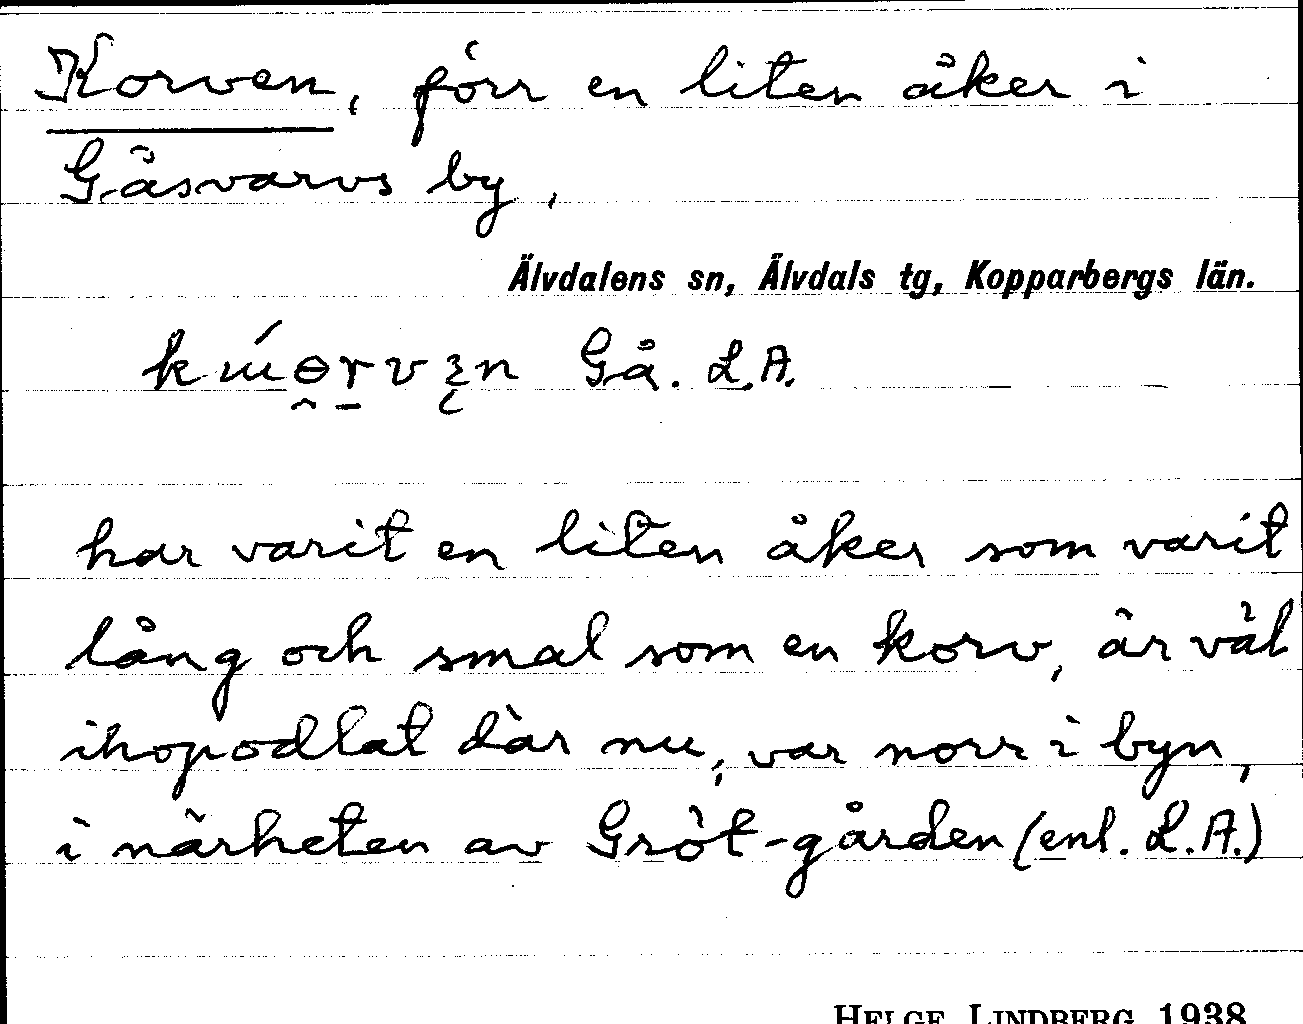 Korven, förr en liten åker i
Gåsvarvs by,
Älvdalens sn, Älvdals tg, Kopparbergs län.
Gå. L.A.
har varit en liten åker som varit
lång och smal som en korv, är väl
ihopodlat där nu, var norr i byn,
i närheten av Gröt-gården (enl. L.A.)
HELGE LINDBERG 1938